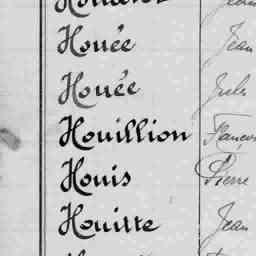 Houée Jean
Houée Jules
Houillion François
Houis Pierre
Houitte Jean